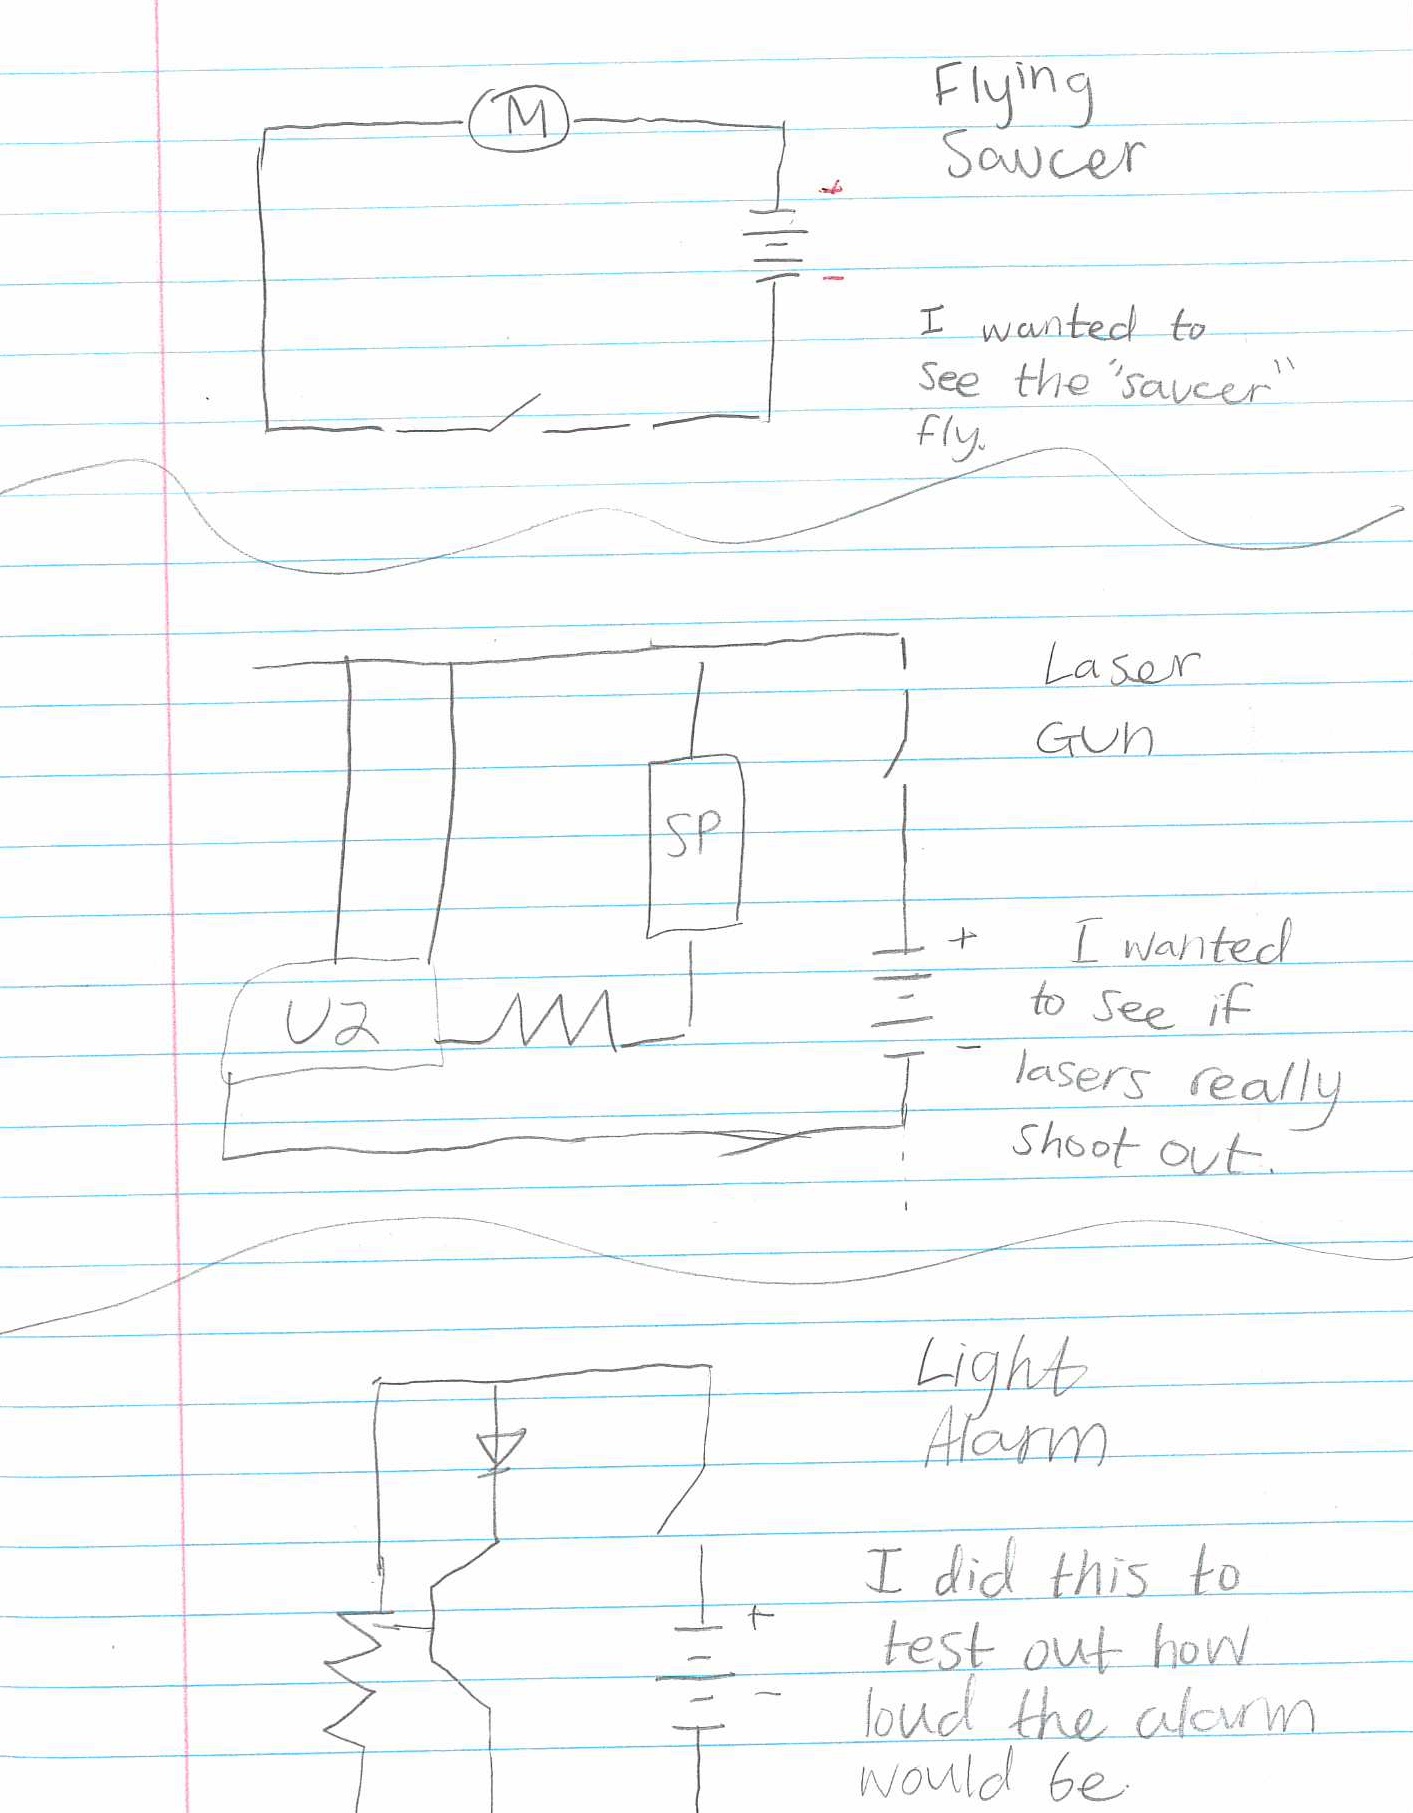 M
Flying
Saucer
+
-
I wanted to
see the "saucer"
fly.
Laser
Gun
SP
U2
+
-
I wanted
to see if
lasers really
shoot out.
Light
Alarm
+
-
I did this to
test out how
loud the alarm
would be.